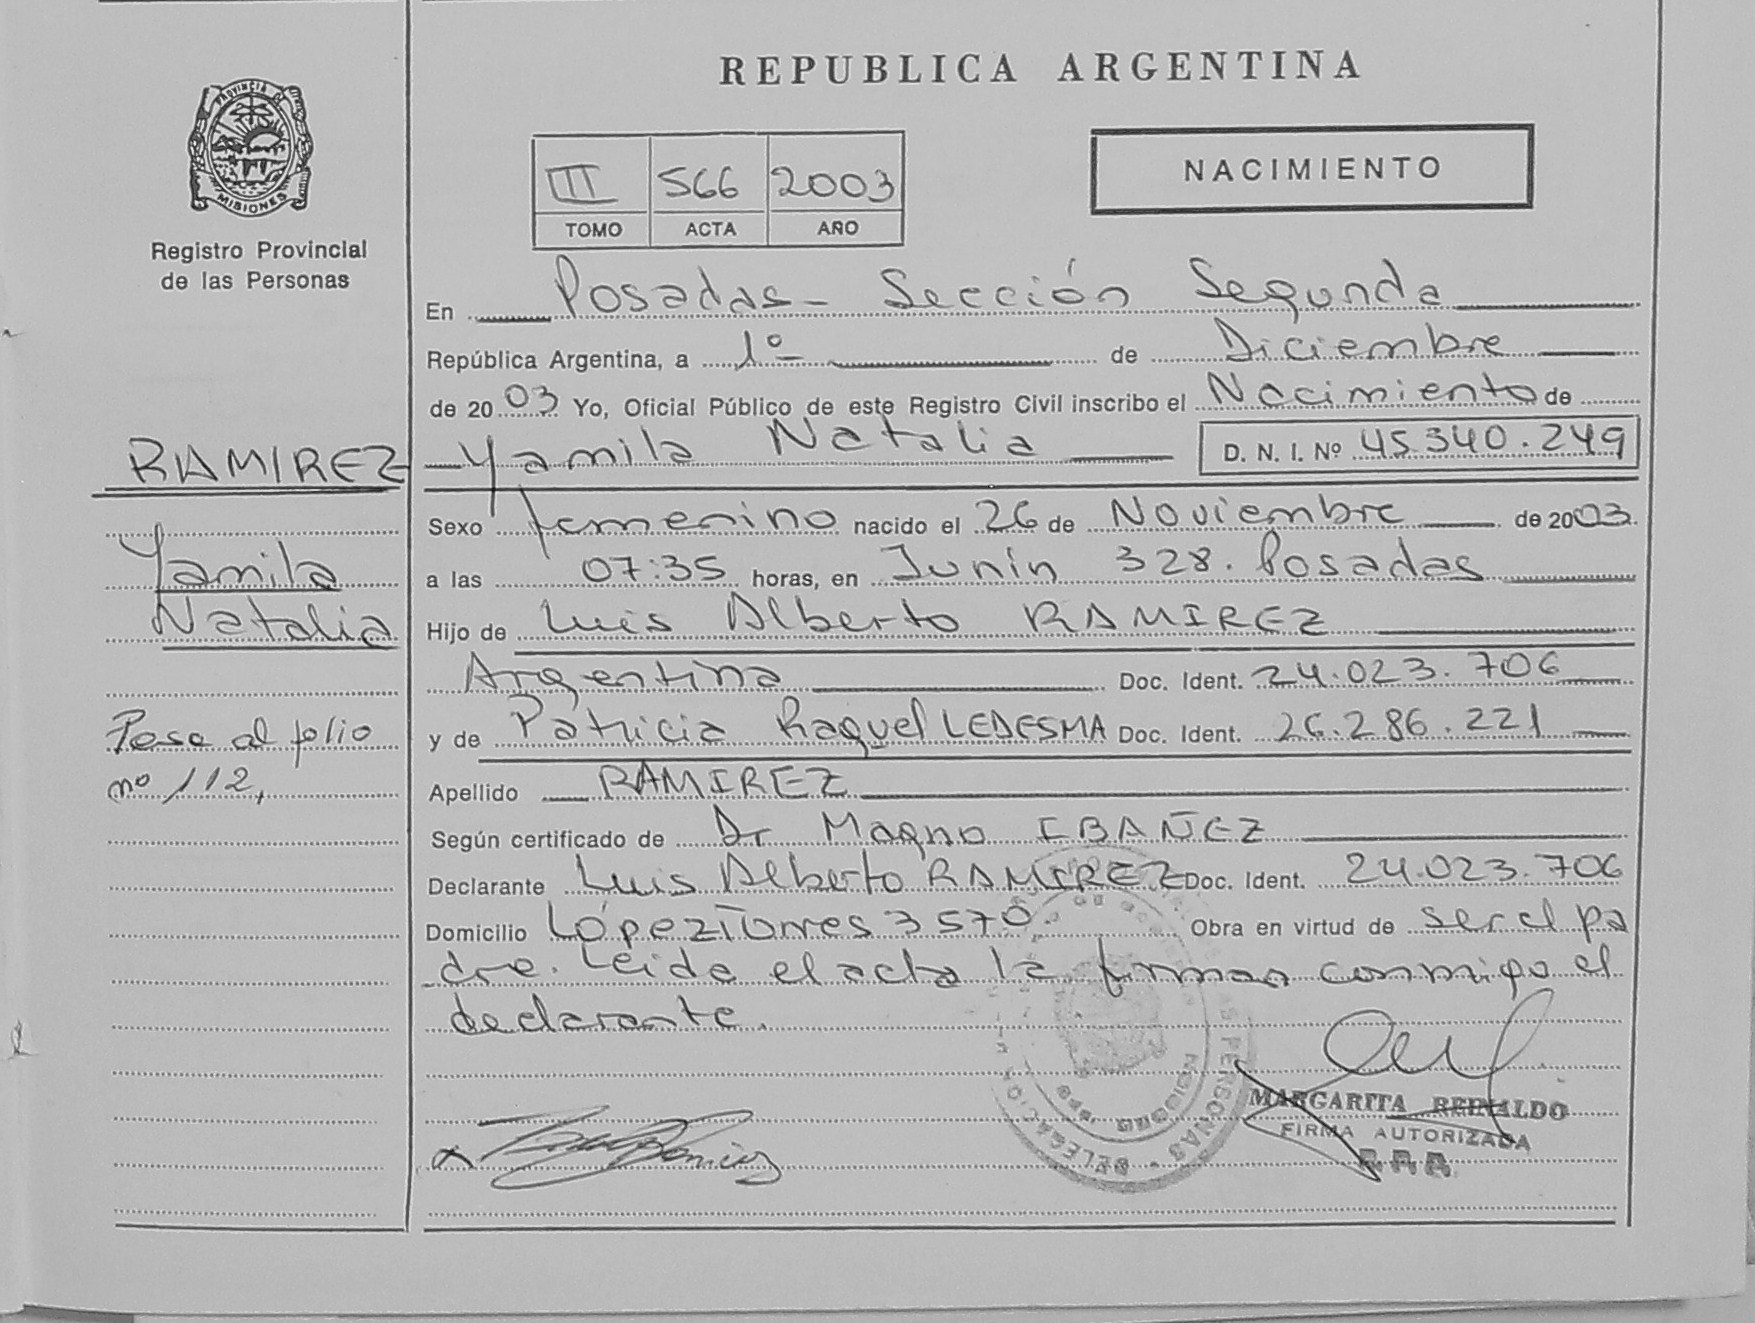 PROVINCIA DE
MISIONES
Registro Provincial
de las Personas
RAMIREZ
Yamila
Natalia
Pasa al folio
nº 112,
REPUBLICA ARGENTINA
III 566 2003
TOMO ACTA AÑO
NACIMIENTO
En Posadas - Sección Segunda
República Argentina, a 1º de Diciembre
de 2003 Yo, Oficial Público de este Registro Civil inscribo el Nacimiento de
Yamila Natalia D. N. I. Nº 45.340.249
Sexo femenino nacido el 26 de Noviembre de 2003.
a las 07:35 horas, en Junín 328. Posadas
Hijo de Luis Alberto RAMIREZ
Argentina Doc. Ident. 24.023.706
y de Patricia Raquel LEDESMA Doc. Ident. 26.286.221
Apellido RAMIREZ
Según certificado de Dr Magno IBAÑEZ
Declarante Luis Alberto RAMIREZ Doc. Ident. 24.023.706
Domicilio López Torres 3570. Obra en virtud de ser el pa
dre. Leida el acta la firman conmigo el
declarante.
MARGARITA
FIRMA AUTORIZADA
PERSONAS
DELEGACION
MISIONES